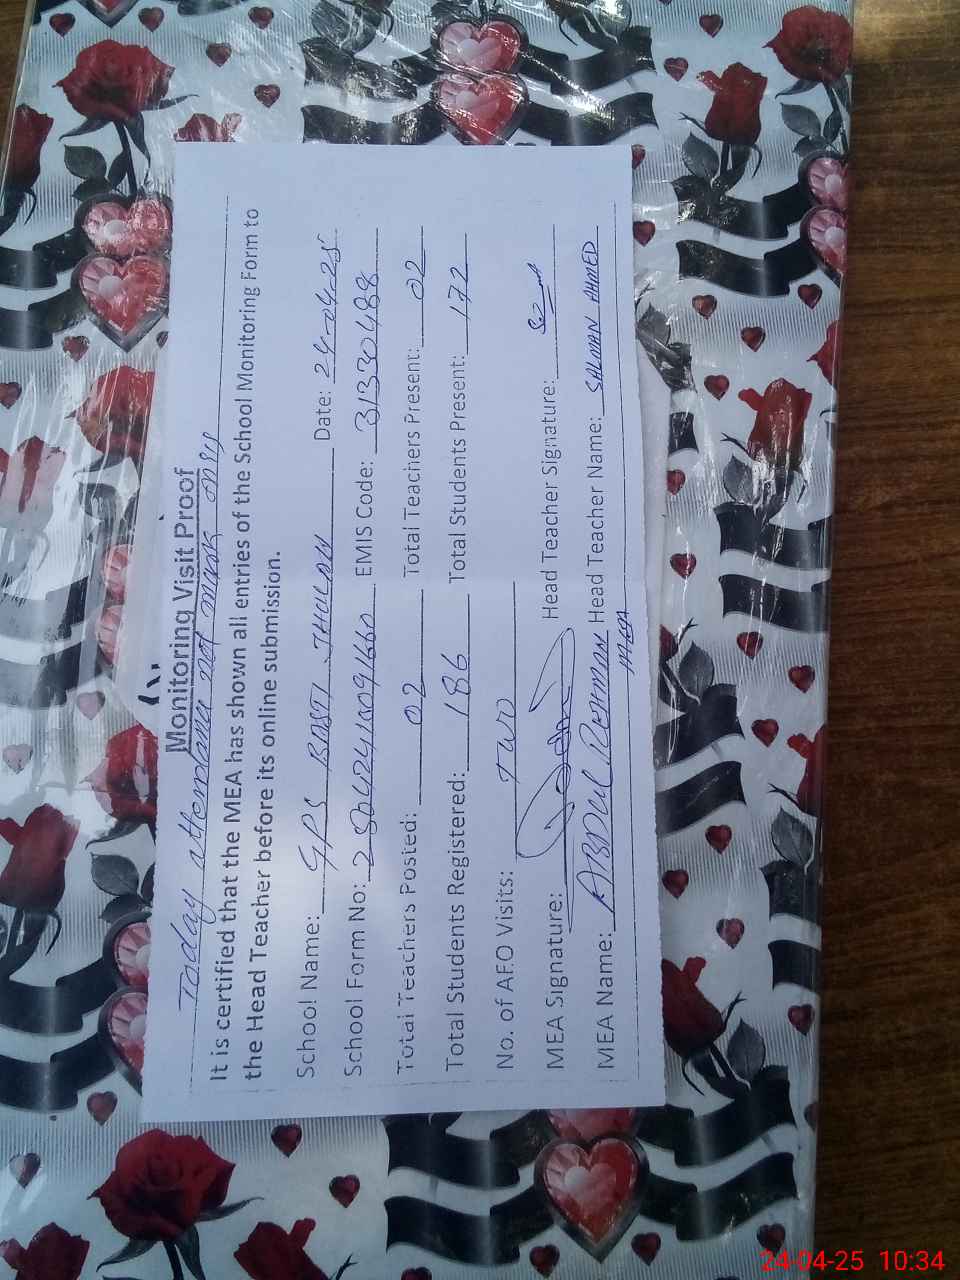 Monitoring Visit Proof
Today attendance not mark on sis
It is certified that the MEA has shown all entries of the School Monitoring Form to
the Head Teacher before its online submission.
School Name: GPS BASTI JHULAN Date: 24-04-25
School Form No: EMIS Code: 31330488
Total Teachers Posted: 02 Total Teachers Present: 02
Total Students Registered: 186 Total Students Present: 172
No. of AEO Visits: TWO
MEA Signature: Head Teacher Signature:
MEA Name: ABDUL REHMAN Head Teacher Name: SALMAN AHMED
24-04-25 10:34